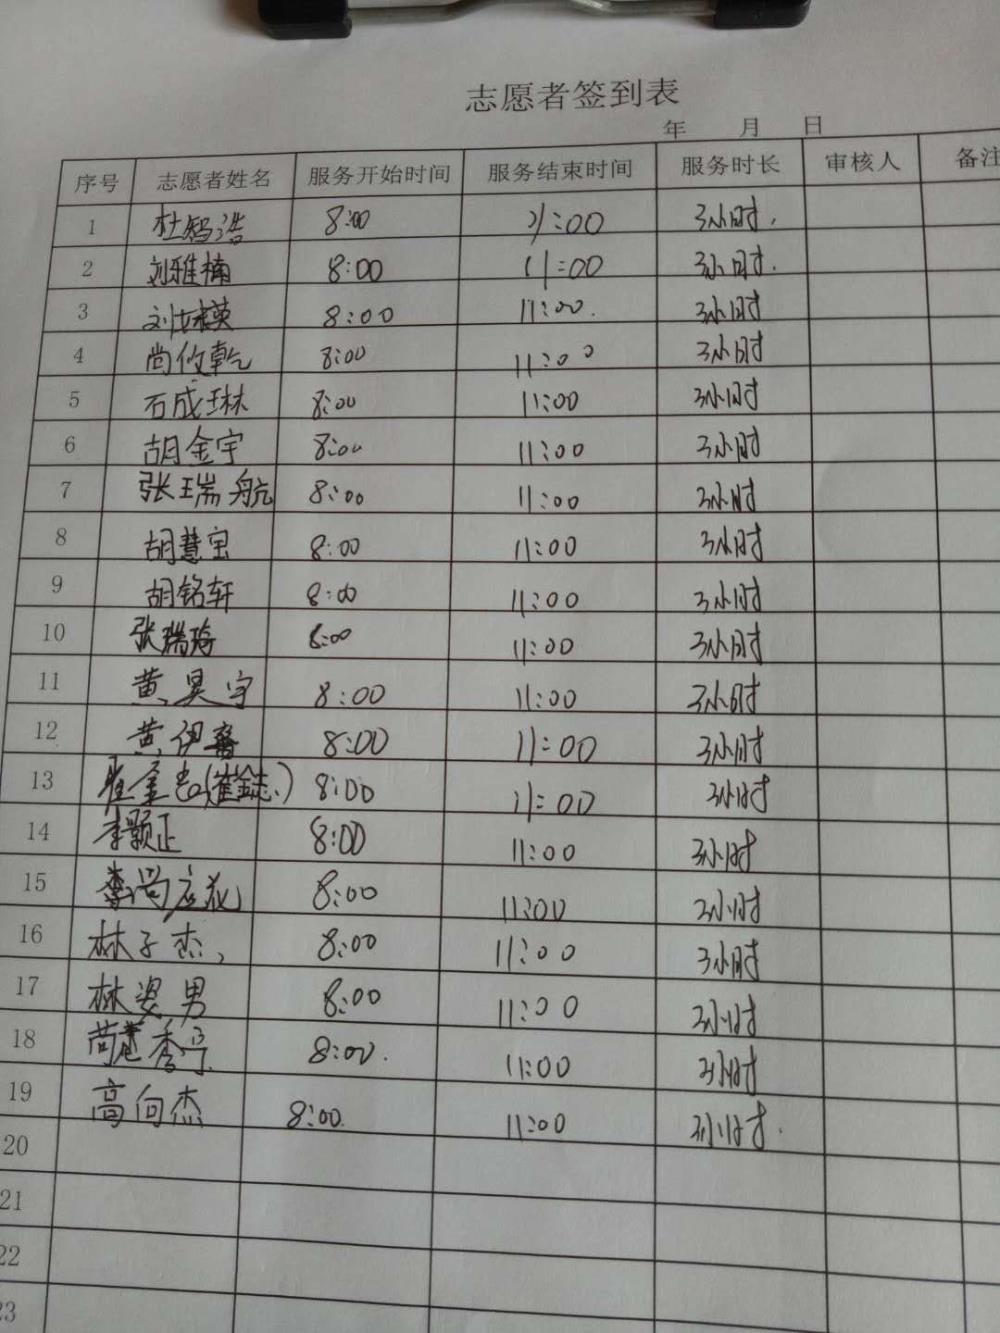 志愿者签到表
年 月 日
序号 志愿者姓名 服务开始时间 服务结束时间 服务时长 审核人 备注
1 杜智浩 8:00 11:00 3小时.
2 刘雅楠 8:00 11:00 3小时.
3 8:00 11:00. 3小时
4 尚攸乾 8:00 11:00 3小时
5 石成琳 8:00 11:00 3小时
6 胡金宇 8:00 11:00 3小时
7 张瑞航 8:00 11:00 3小时
8 胡慧宝 8:00 11:00 3小时
9 胡铭轩 8:00 11:00 3小时
10 张瑞琦 8:00 11:00 3小时
11 黄昊宇 8:00 11:00 3小时
12 黄伊 8:00 11:00 3小时
13 崔金志(崔金志.) 8:00 11:00 3小时
14 李颢正 8:00 11:00 3小时
15 8:00 11:00 3小时
16 林子杰, 8:00 11:00 3小时
17 林姿男 8:00 11:00 3小时
18 8:00. 11:00 3小时
19 高向杰 8:00. 11:00 3小时.
20
21
22
23